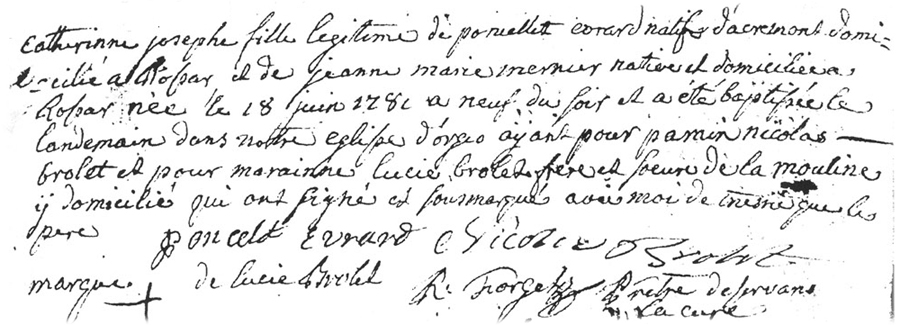 Catherinne josephe fille legitime de poncellet evrard natif d'acremont domi-
cilié a Rossar et de jeanne marie mernier native et domiciliée a
Rossar née le 18 juin 1781 a neuf du soir et a été baptisée le
landemain dans notre eglisse d'orgeo ajant pour parain nicolas
brolet et pour marainne lucie brolet frere et soeur de la mouline
ij domicilié qui ont signé et sousmarqué avec moi de meme que le
pere
Poncelet Evrard Nicolas Brolet
marque de lucie Brolet
R. Forget Pretre deservans
la cure